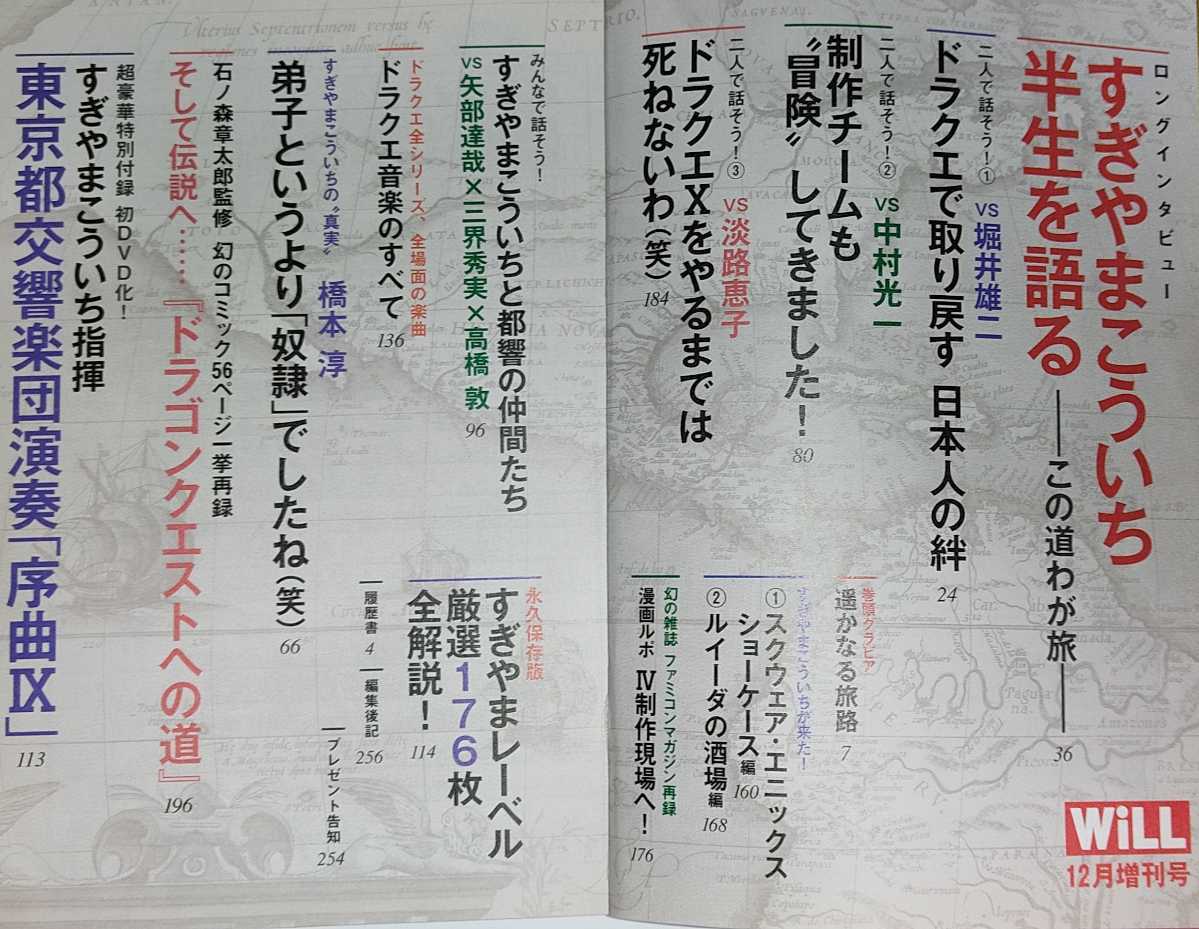 ロングインタビュー
すぎやまこういち
半生を語る
――この道わが旅――
36
二人で話そう!①
vs堀井雄二
ドラクエで取り戻す 日本人の絆
24
二人で話そう!②
vs中村光一
制作チームも
〝冒険〟してきました!
80
二人で話そう!③
vs淡路恵子
ドラクエXをやるまでは
死ねないわ(笑)
184
巻頭グラビア
遥かなる旅路
7
すぎやまこういちが来た!
①スクウェア・エニックス
ショーケース編
160
②ルイーダの酒場編
168
幻の雑誌 ファミコンマガジン再録
漫画ルポ Ⅳ制作現場へ!
176
WiLL
12月増刊号
みんなで話そう!
すぎやまこういちと都響の仲間たち
vs矢部達哉×三界秀実×高橋 敦
96
ドラクエ全シリーズ、全場面の楽曲
ドラクエ音楽のすべて
136
すぎやまこういちの〝真実〟
橋本 淳
弟子というより「奴隷」でしたね(笑)
66
石ノ森章太郎監修 幻のコミック56ページ一挙再録
そして伝説へ……『ドラゴンクエストへの道』
196
超豪華特別付録 初DVD化!
すぎやまこういち指揮
東京都交響楽団演奏「序曲Ⅸ」
113
永久保存版
すぎやまレーベル
厳選176枚
全解説!
114
履歴書
4
編集後記
256
プレゼント告知
254